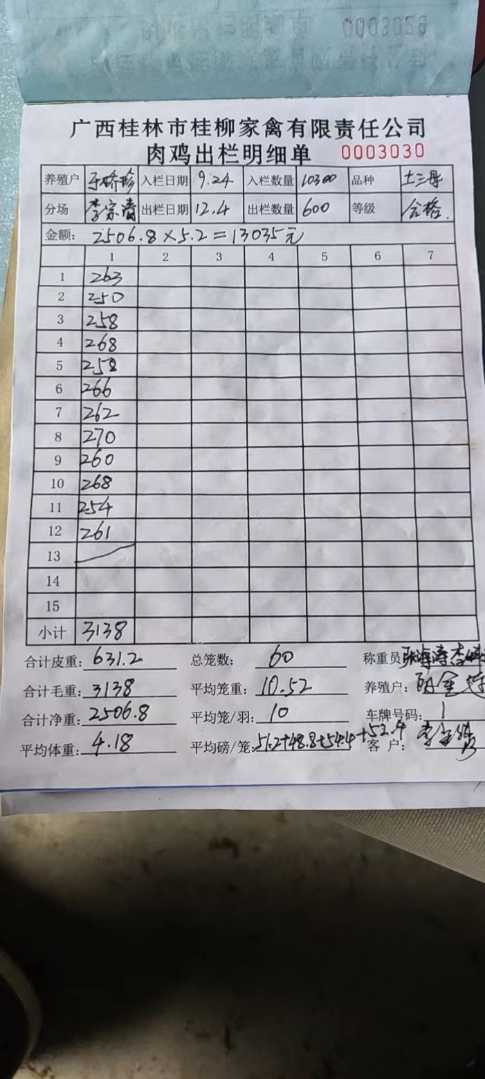 广西桂林市桂柳家禽有限责任公司
肉鸡出栏明细单 0003030
养殖户 入栏日期 9.24 入栏数量 10300 品种 土三号
分场 出栏日期 12.4 出栏数量 600 等级 合格.
金额: 2506.8×5.2=13035元
1 2 3 4 5 6 7
1 263
2 250
3 258
4 268
5 258
6 266
7 262
8 270
9 260
10 268
11 254
12 261
13
14
15
小计 3138
合计皮重: 631.2 总笼数: 60 称重员
合计毛重: 3138 平均笼重: 10.52 养殖户:
合计净重: 2506.8 平均笼/羽: 10 车牌号码: 1
平均体重: 4.18 平均磅/笼: 51.2+48.8+54.4+52.4 客 户: